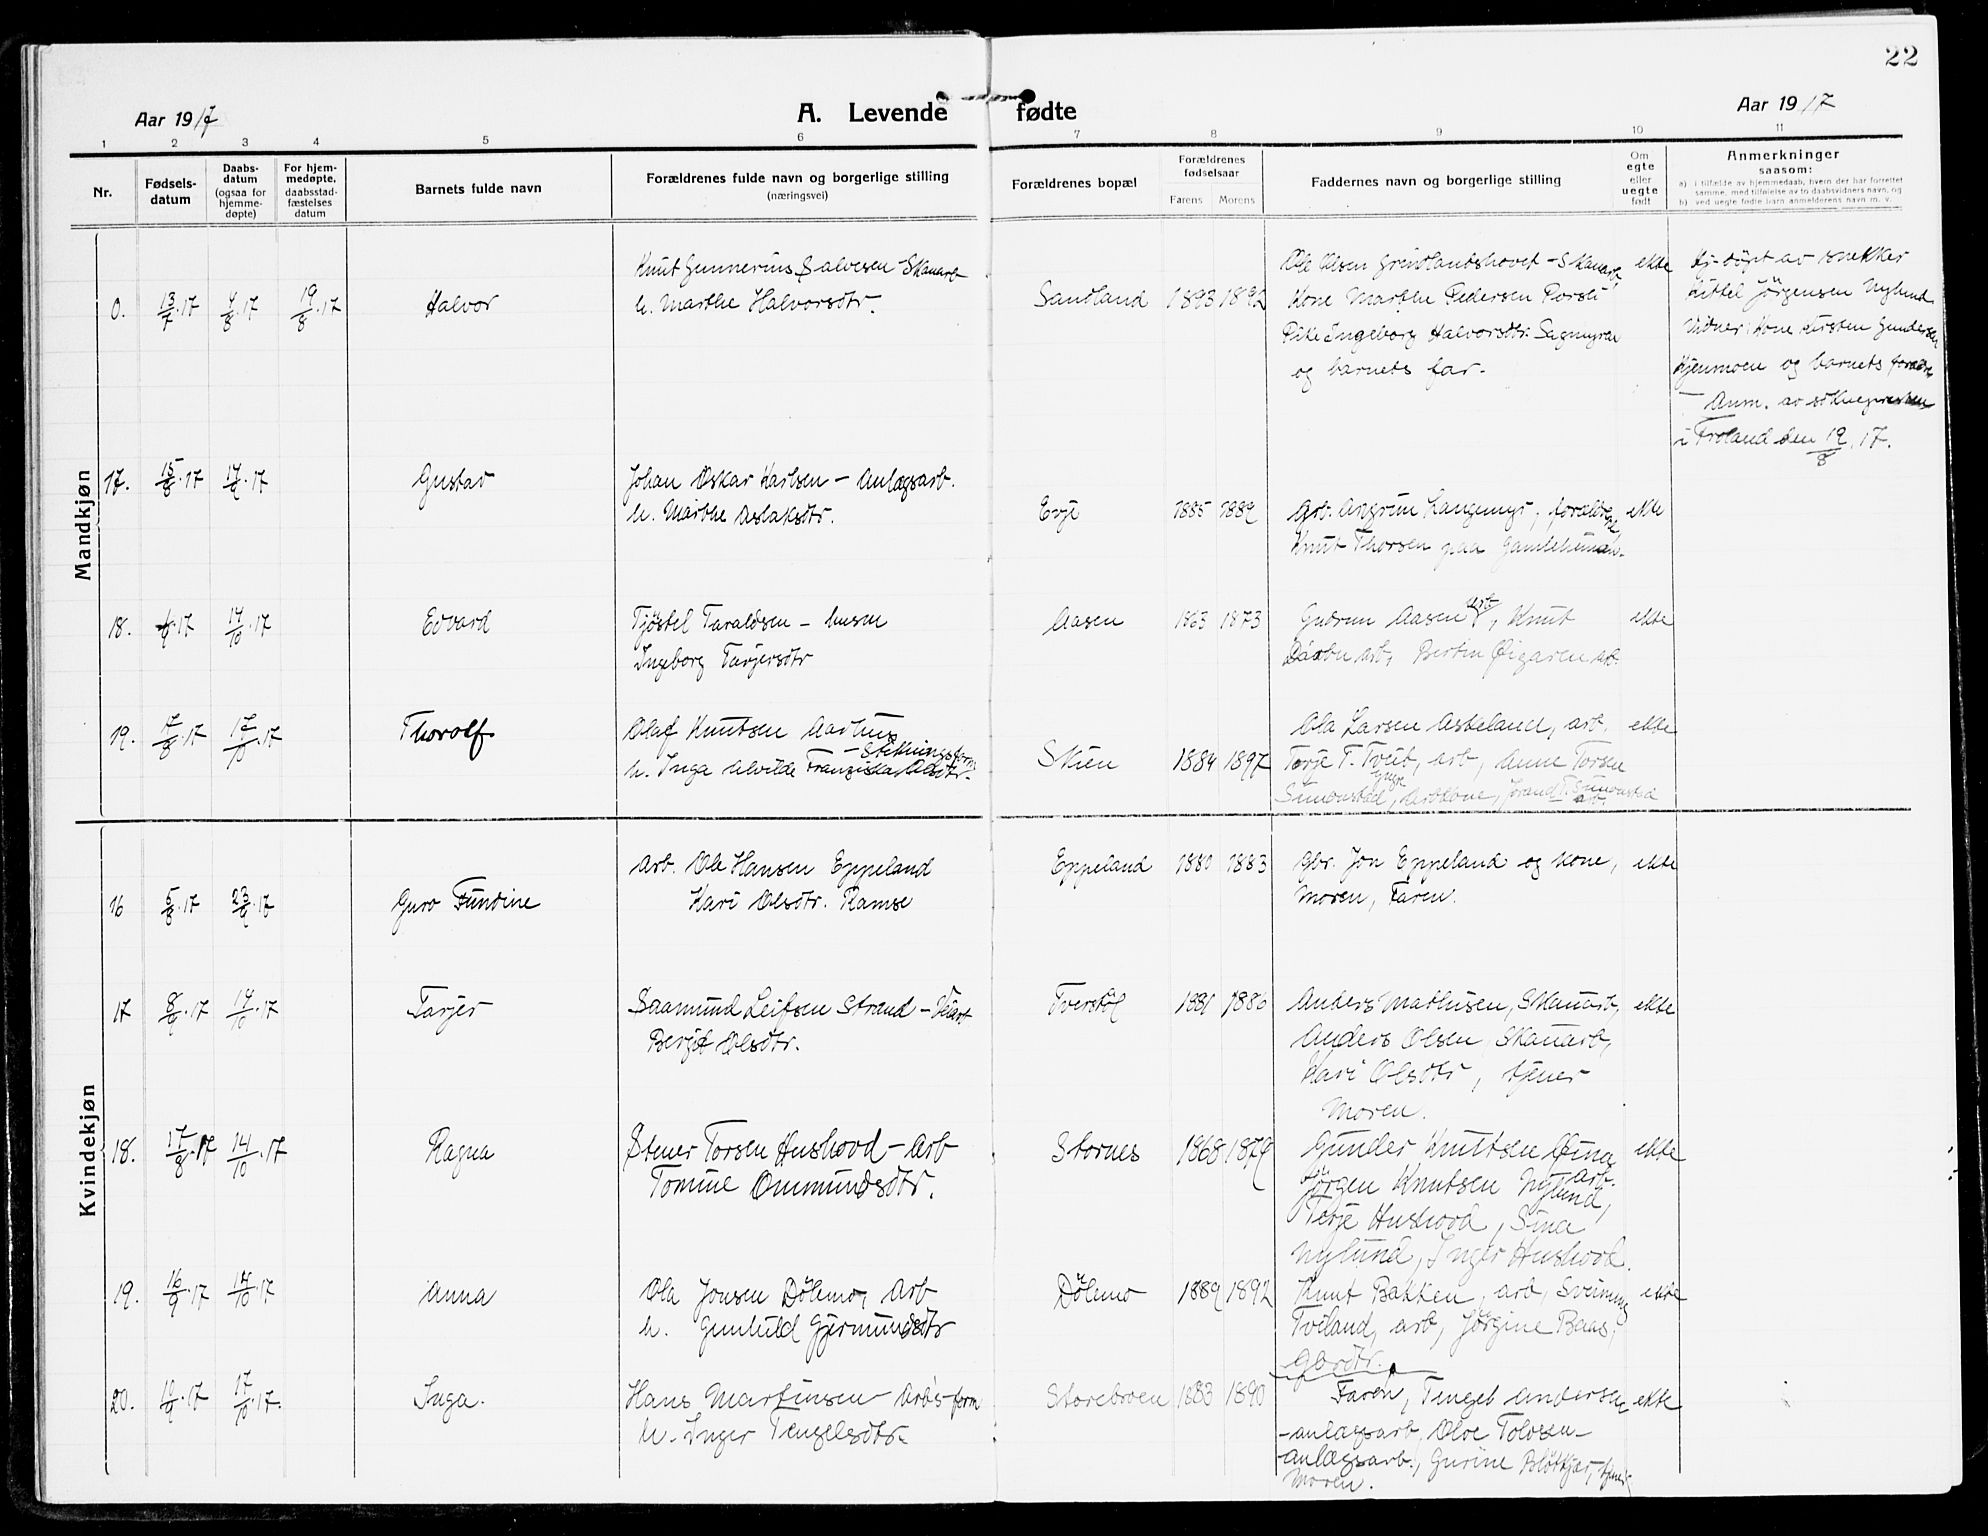 22
Aar 1917
A. Levende fødte
Aar 1917
1 2 3 4 5 6 7 8 9 10 11
Nr.
Fødsels-
datum
Daabs-
datum
(ogsaa for
hjemme-
døpte)
For hjem-
medøpte,
daabsstad-
fæstelses
datum
Barnets fulde navn
Forældrenes fulde navn og borgerlige stilling
(næringsvei)
Forældrenes bopæl
Forældrenes
fødselsaar
Farens Morens
Faddernes navn og borgerlige stilling
Om
egte
eller
uegte
født
Anmerkninger
saasom:
a) i tilfælde av hjemmedaab, hvem der har forrettet
samme, med tilføielse av to daabsvidners navn, og
b) ved uegte fødte barn anmelderens navn m. v.
Mandkjøn
0. 13/7.17 4/8.17 19/8.17 Halvor
Knut Gunnerius Salvesen Skauarb
h. Marthe Halvorsdtr.
Sandland 1893 1892
Ole Olsen Grindlandshovet - Skauarb,
Kone Marthe Pedersen Porsli
Pike Ingeborg Halvorsdtr. Sagmyren
og barnets far.
ekte
Hj. døpt av snekker
Kittel Jörgensen Nylund
Vidner: Kone Kirsten Gundersen
Hjenmoen og barnets forældre
- Anm. av soknepresten
i Froland den 19/8.17.
17. 15/8.17 17/9.17 Gustav
Johan Oskar Karlsen - Anlægsarb.
h. Marthe Aslaksdtr.
Evje 1885 1889
Arb. Angrim Langemyr, forældrene
Knut Thorsen paa
ekte
18. 17 14/10.17 Edvard
Tjøstel Taraldsen - husm
Ingeborg Tarjersdtr
Aasen 1863 1873
Gudrun Aasen arb, Knut
arb, Bertin Øigaren arb.
ekte
19. 17/8.17 17/10.17 Thorolf
Olaf Knutsen Aarhus
- Stikningsform
h. Inga Alvilde Franziska Olsdtr.
Skien 1884 1897
Ola Larsen Askeland, arb.
Terje T. Tveit, arb, Anne Torsen
Simonstad, yngre Arbkone, Jorand T. Simonstad
arb.
ekte
Kvindekjøn
16 5/8.17 23/9.17 Guro Fundine
Arb. Ole Hansen Eppeland
Kari Olsdtr. Ramse
Eppeland 1880 1883
Gbr. Jon Eppeland og kone,
Moren, Faren.
ekte
17 8/9.17 14/10.17 Tarjer
Saamund Leifsen Strand - Veiarb
Bergit Olsdtr.
Tverstøl 1881 1886
Anders Mathisen, Skauarb,
Anders Olsen Skauarb,
Kari Olsdtr, tjener
Moren.
ekte
18. 17/8.17 14/10.17 Ragna
Stener Torsen Hushovd - Arb
Tomine Ommundsdtr.
Stornes 1868 1879
Gunder Knutsen Øina
arb.
Jörgen Knutsen Nylund,
Terje Hushovd, Sina
Nylund, Inger Hushovd.
ekte
19. 16/9.17 14/10.17 Anna
Ola Jonsen Dölemo, Arb
h. Gunhild Gjermundsdtr
Dölemo 1889 1892
Knut Bakken, arb, Sveinung
Tveland, arb, Jörgine Baas,
Gbrdtr.
ekte
20. 17 17/10.17. Inga.
Hans Martinsen - Arbs-form
h. Inger Tengelsdtr.
Storebroen 1883 1890
Faren, Tengel Andersen
- anlægsarb, Olve Tolvsen -
anlægsarb., Gurine Blötkjær, tjener
Moren.
ekte